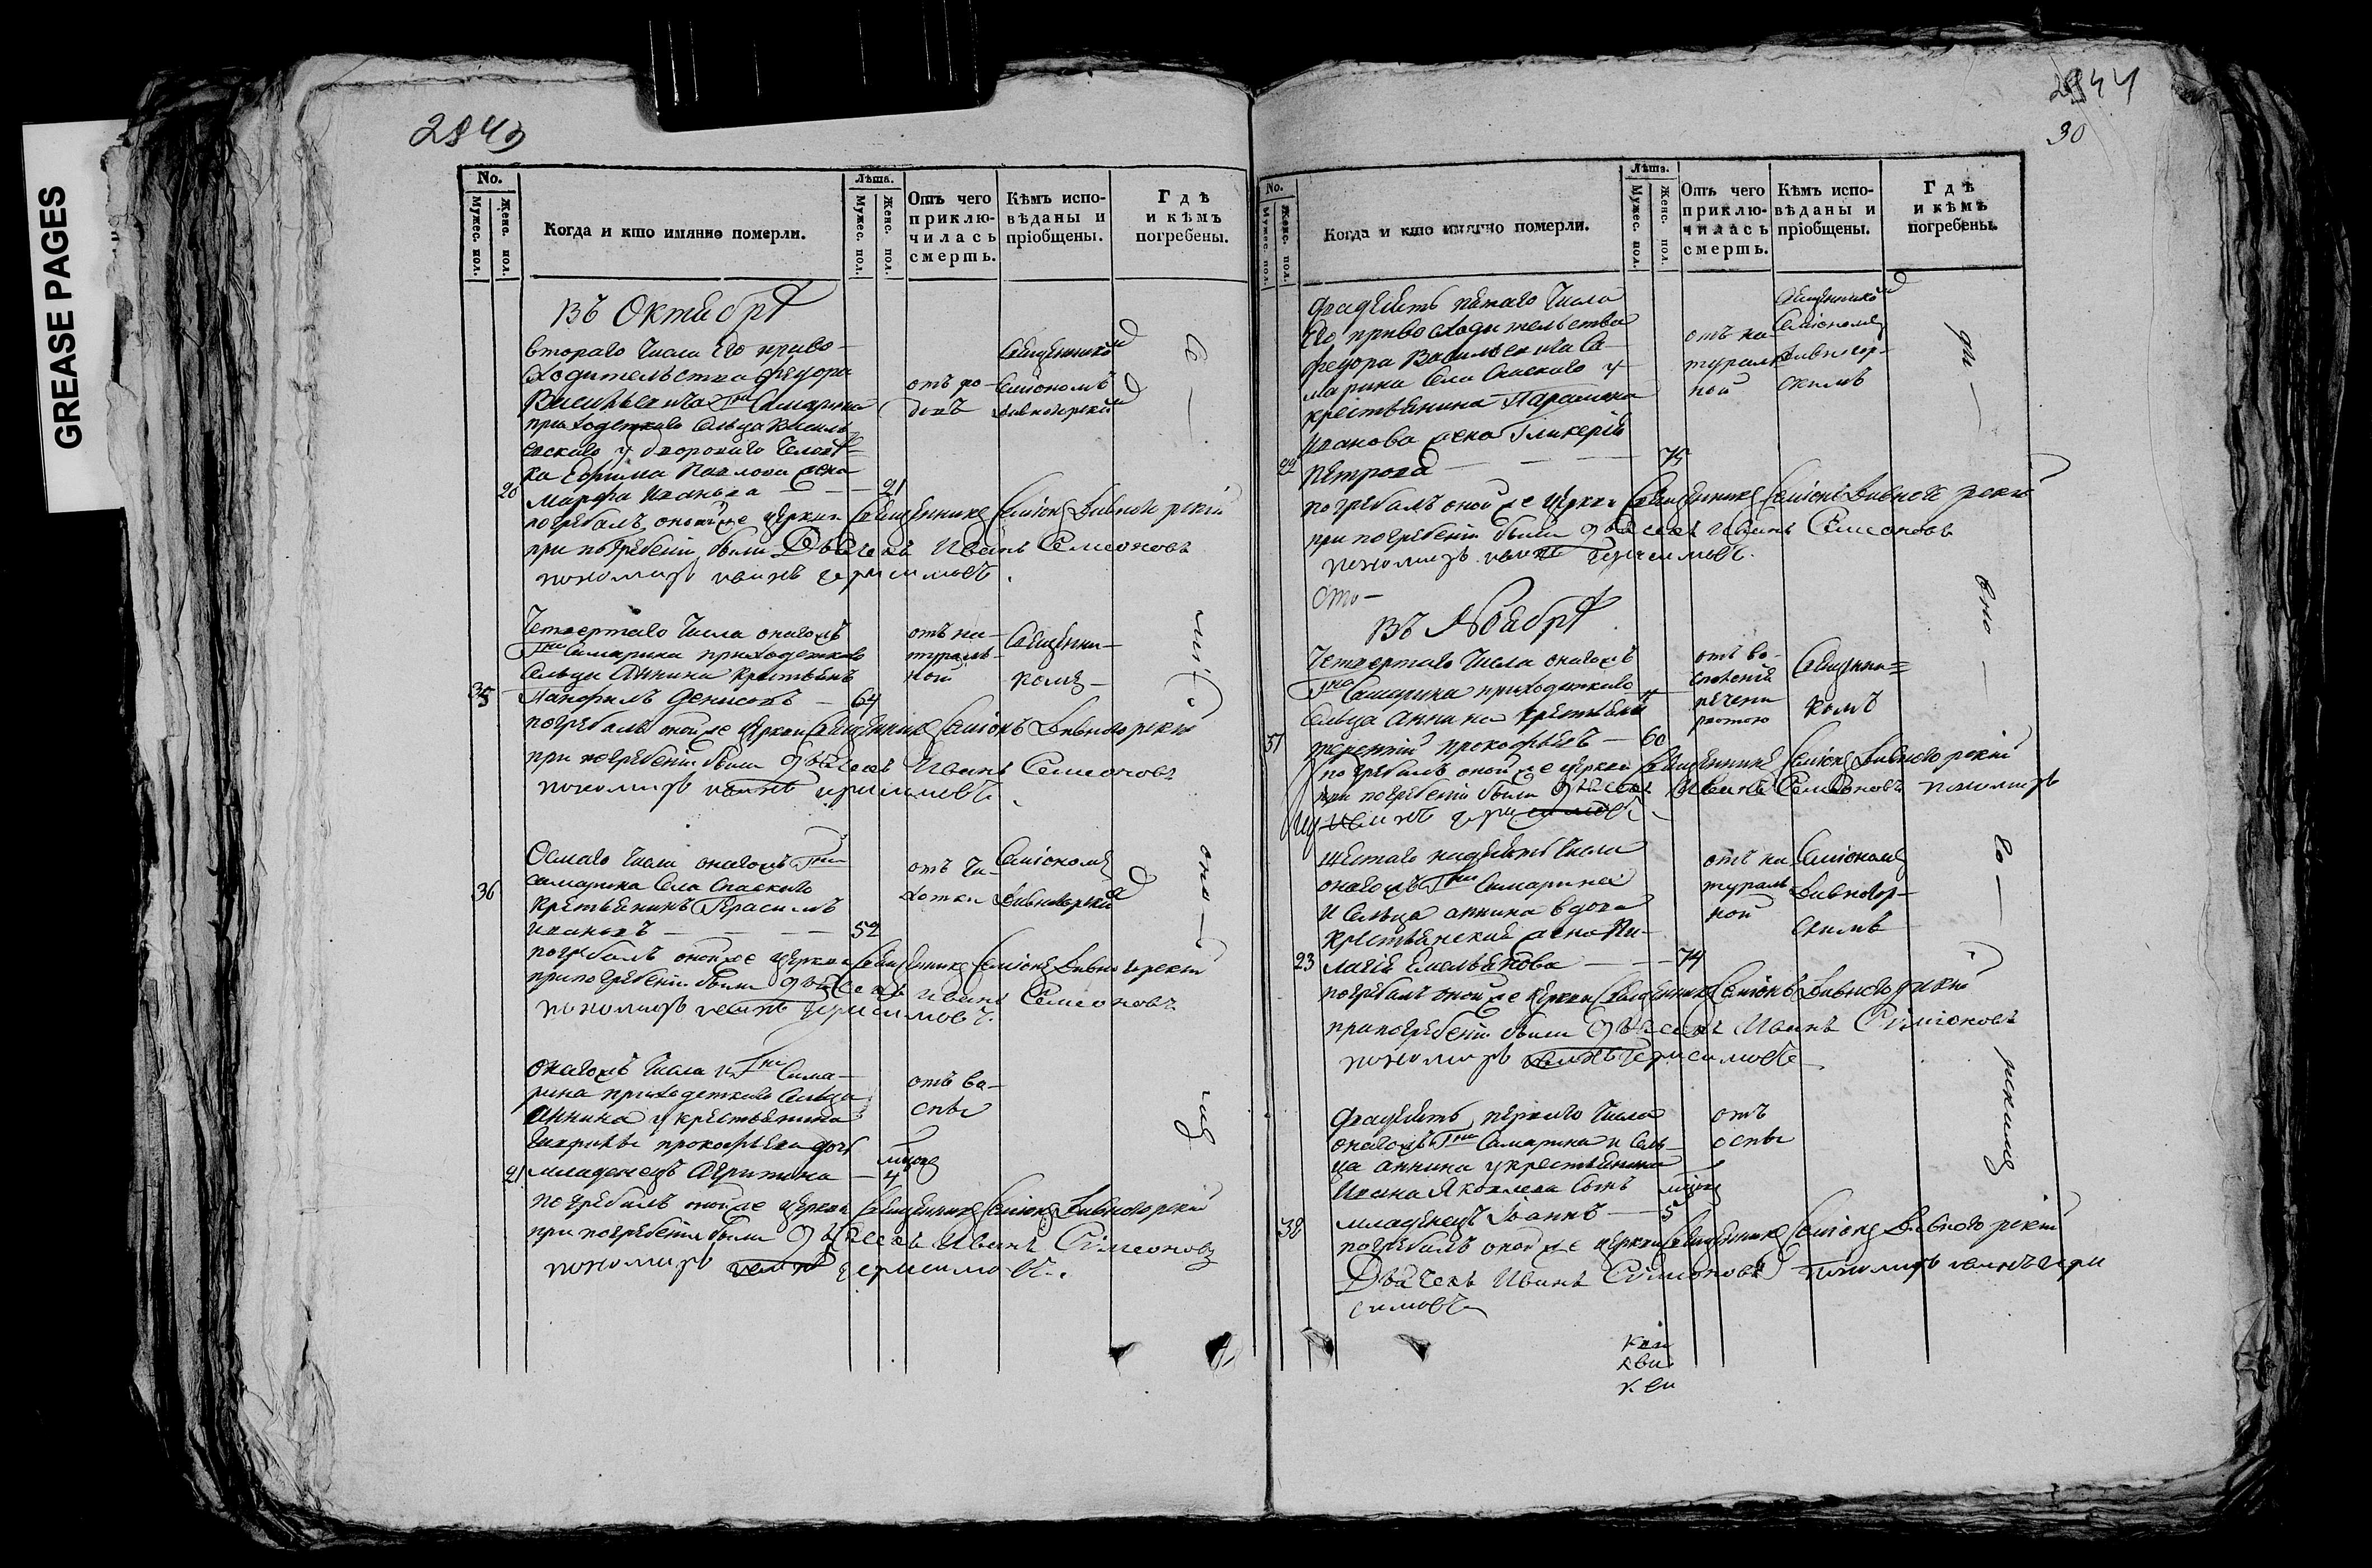 GREASE PAGES
2843
No.
Мужес. пол.
Женс. пол.
Когда и кто имянно померли.
Лѣта.
Мужес. пол.
Женс. пол.
Отъ чего приклю-
чилась смерть.
Кѣмъ испо-
вѣданы и
пріобщены.
Гдѣ
и кѣмъ
погребены.
Въ Октябрѣ
втораго числа Его прево-
сходительства Федора
Васильевича Гна Самарина
сельца Василь
евскаго у двороваго челове
ка Ефима Павлова жена
20 Марфа Иванова — — — 21
отъ ро-
довъ
Священникомъ
Симіономъ
Дивногорскимъ
погребалъ оной же церкви Священникъ Симіонъ Дивногорскій
при погребеніи были Дьячекъ Иванъ Семионовъ
пономарь иванъ герасимовъ.
Четвертаго числа онагожъ
Гна Самарина
сельца Аннина крестьянъ
35 Панфилъ Денисовъ — 64
отъ на-
тураль-
ной
Священни-
комъ —
погребалъ оной же церкви Священникъ Симіонъ Дивногорскій
при погребеніи были дьячекъ Иванъ Семионовъ
пономарь иванъ герасимовъ.
Осмаго числа онагожъ Гна
Самарина Села Спаскаго
36 крестьянинъ Герасимъ
Ивановъ — — — 52
отъ чи-
хотки
Симіономъ
Дивногорскимъ
погребалъ оной же церкви Священникъ Симіонъ Дивногорскій
при погребеніи были дьячекъ иванъ Семионовъ
пономарь иванъ герасимовъ.
Онагожъ числа и Гна Сама-
рина сельца
Аннина у крестьянина
прокофьева дочь
21 младенецъ Агрипина — 4
отъ во-
спы
погребалъ оной же церкви Священникъ Симіонъ Дивногорскій
при погребеніи были дьячекъ Иванъ Симеоновъ
пономарь иванъ герасимовъ.
2844
30
No.
Мужес. пол.
Женс. пол.
Когда и кто имянно померли.
Лѣта.
Мужес. пол.
Женс. пол.
Отъ чего приклю-
чилась смерть.
Кѣмъ испо-
вѣданы и
пріобщены.
Гдѣ
и кѣмъ
погребены.
Его превосходительства
Федора Васильевича Са-
марина Села Спаскаго у
крестьянина Парамона
Иванова жена Гликерія
22 Петрова — — — 75
отъ на
тураль
ной
Священникомъ
Симіономъ
Дивногор-
скимъ
погребалъ оной же церкви Священникъ Симіонъ Дивногорскій
при погребеніи были дьячекъ Иванъ Семионовъ
пономарь иванъ герасимовъ.
Въ Ноябрѣ
Четвертаго числа онагожъ
Гна Самарина
сельца Аннина
прокофьевъ — 60
Священни=
комъ
погребалъ оной же церкви Священникъ Симіонъ Дивногорскій
при погребеніи были дьячекъ Иванъ Семионовъ пономарь
иванъ герасимовъ.
числа
онагожъ Гна Самарина
и сельца аннина вдова
крестьянская жена Пи-
23 лагія Емельянова — — 74
отъ на
тураль
ной
Симіономъ
Дивногор-
скимъ
погребалъ оной же церкви Священникъ Симіонъ Дивногорскій
при погребеніи были дьячекъ Иванъ Симіоновъ
пономарь иванъ герасимовъ
перваго числа
онагожъ Гна Самарина и сель-
ца аннина у крестьянина
Ивана Яковлева сынъ
38 младенецъ Іоаннъ — 5
отъ
оспы
погребалъ оной же церкви Священникъ Симіонъ Дивногорскій
Дьячекъ Иванъ Симіоновъ пономарь иванъ гера
симовъ